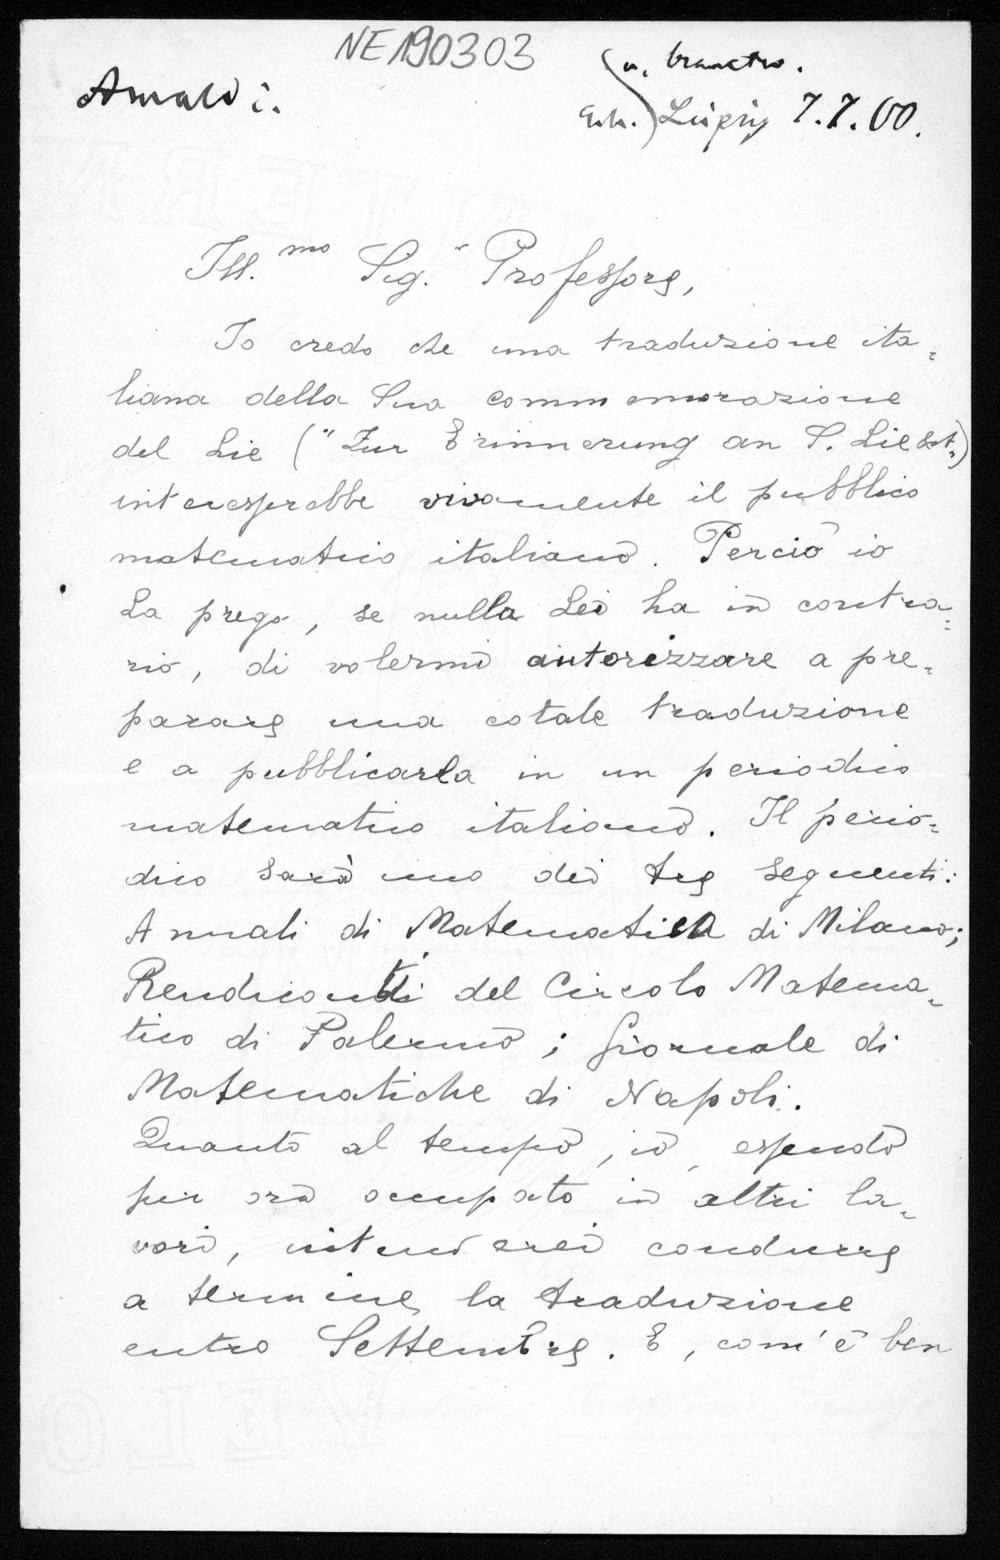 NE190303
Amaldi.
u. beantw.
Erh. Leipzig 7.7.00.
Ill.mo Sig.r Professore,
Io credo che una traduzione ita=
liana della Sua commemorazione
del Lie ("Zur Erinnerung an S. Lie &ct.")
interesserebbe vivamente il pubblico
matematico italiano. Perciò io
La prego, se nulla Lei ha in contra=
rio, di volermi autorizzare a pre=
parare una cotale traduzione
e a pubblicarla in un periodico
matematico italiano. Il perio=
dico sarà uno dei tre seguenti:
Annali di Matematica di Milano;
Rendiconti del Circolo Matema=
tico di Palermo; Giornale di
Matematiche di Napoli.
Quanto al tempo, io, essendo
per ora occupato in altri la=
vori, intenderei condurre
a termine la traduzione
entro Settembre. E, com'è ben
VELO